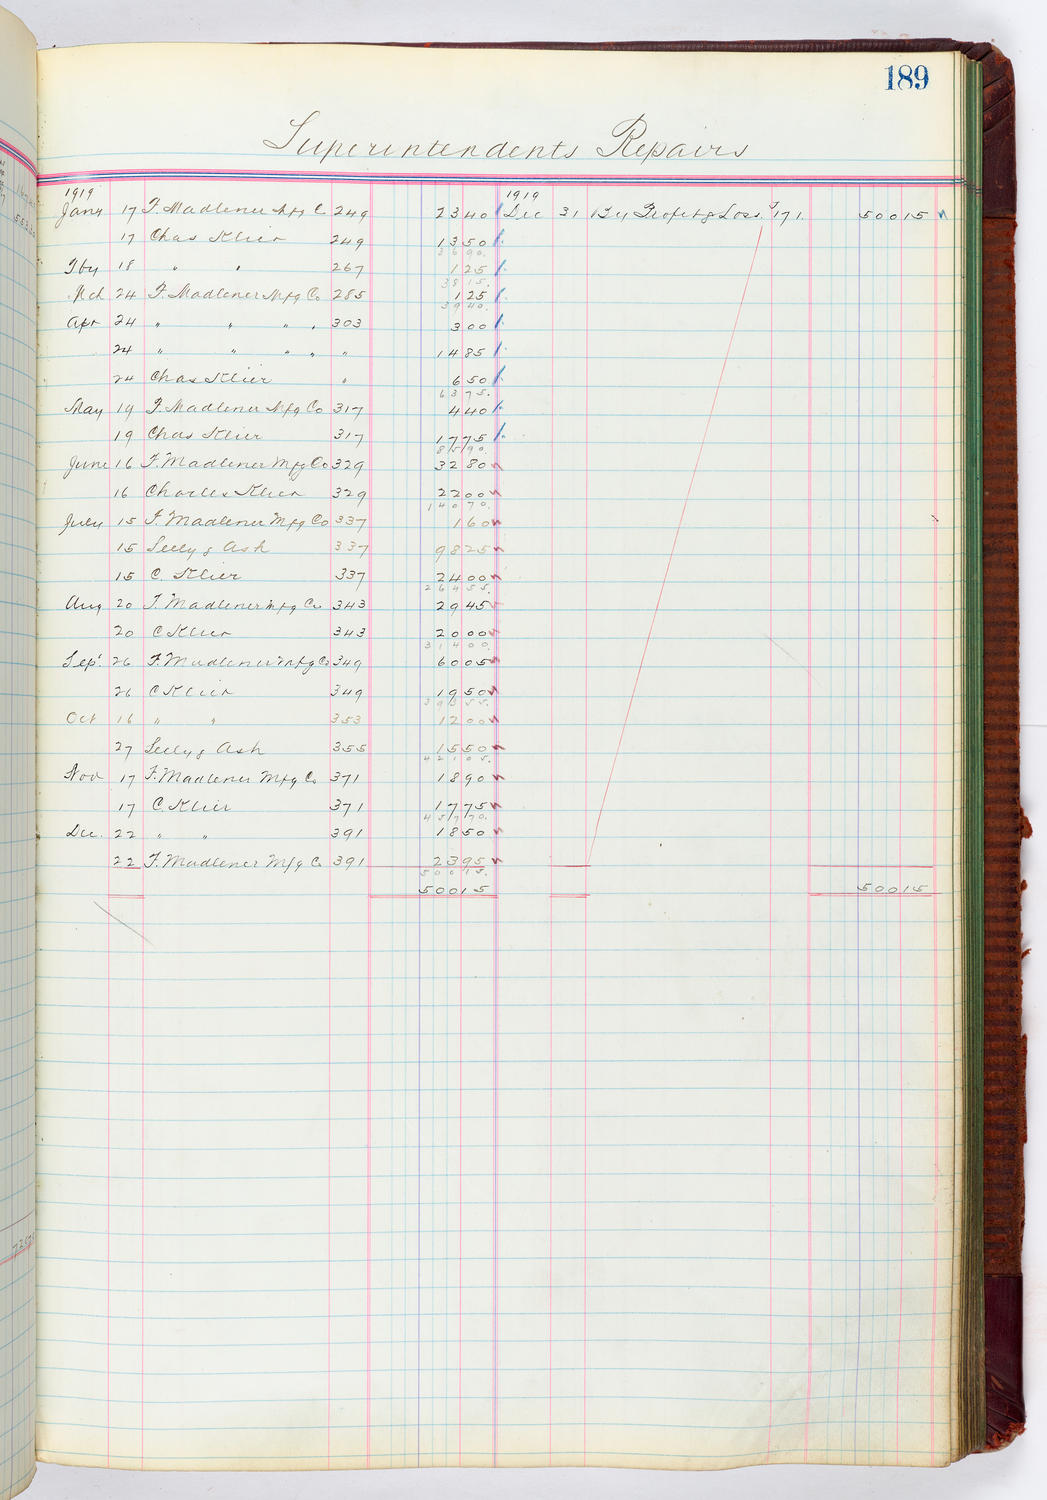 189
Superintendents Repairs
1919 1919
Jany 17 F. Madlener Mfg Co 249 23 40 Dec 31 By Profit & Loss 171 500 15
17 Chas Klier 249 13 50
36 90.
Fby 18 " " 267 1 25
38 15.
Mch 24 F. Madlener Mfg Co 285 1 25
39 40.
Apr 24 " " " " 303 3 00
24 " " " " " 14 85
24 Chas Klier " 6 50
63 75.
May 19 F. Madlener Mfg Co 317 4 40
19 Chas Klier 317 17 75
85 90.
June 16 F. Madlener Mfg Co 329 32 80
16 Charles Klier 329 22 00
140 70.
July 15 F. Madlener Mfg Co 337 1 60
15 Seely & Ash 337 98 25
15 C. Klier 337 24 00
264 55.
Aug 20 F. Madlener Mfg Co 343 29 45
20 C Klier 343 20 00
314 00.
Sep. 26 F. Madlener Mfg Co 349 60 05
26 C Klier 349 19 50
393 55.
Oct 16 " " 353 12 00
27 Seely & Ash 355 15 50
421 05.
Nov 17 F. Madlener Mfg Co 371 18 90
17 C. Klier 371 17 75
457 70.
Dec. 22 " " 391 18 50
22 F. Madlener Mfg Co 391 23 95
500 15.
500 15 500 15